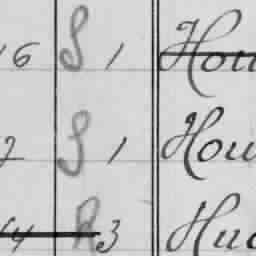 16 S 1 Hou
2 S 1 Hou
64 R 3 Hud